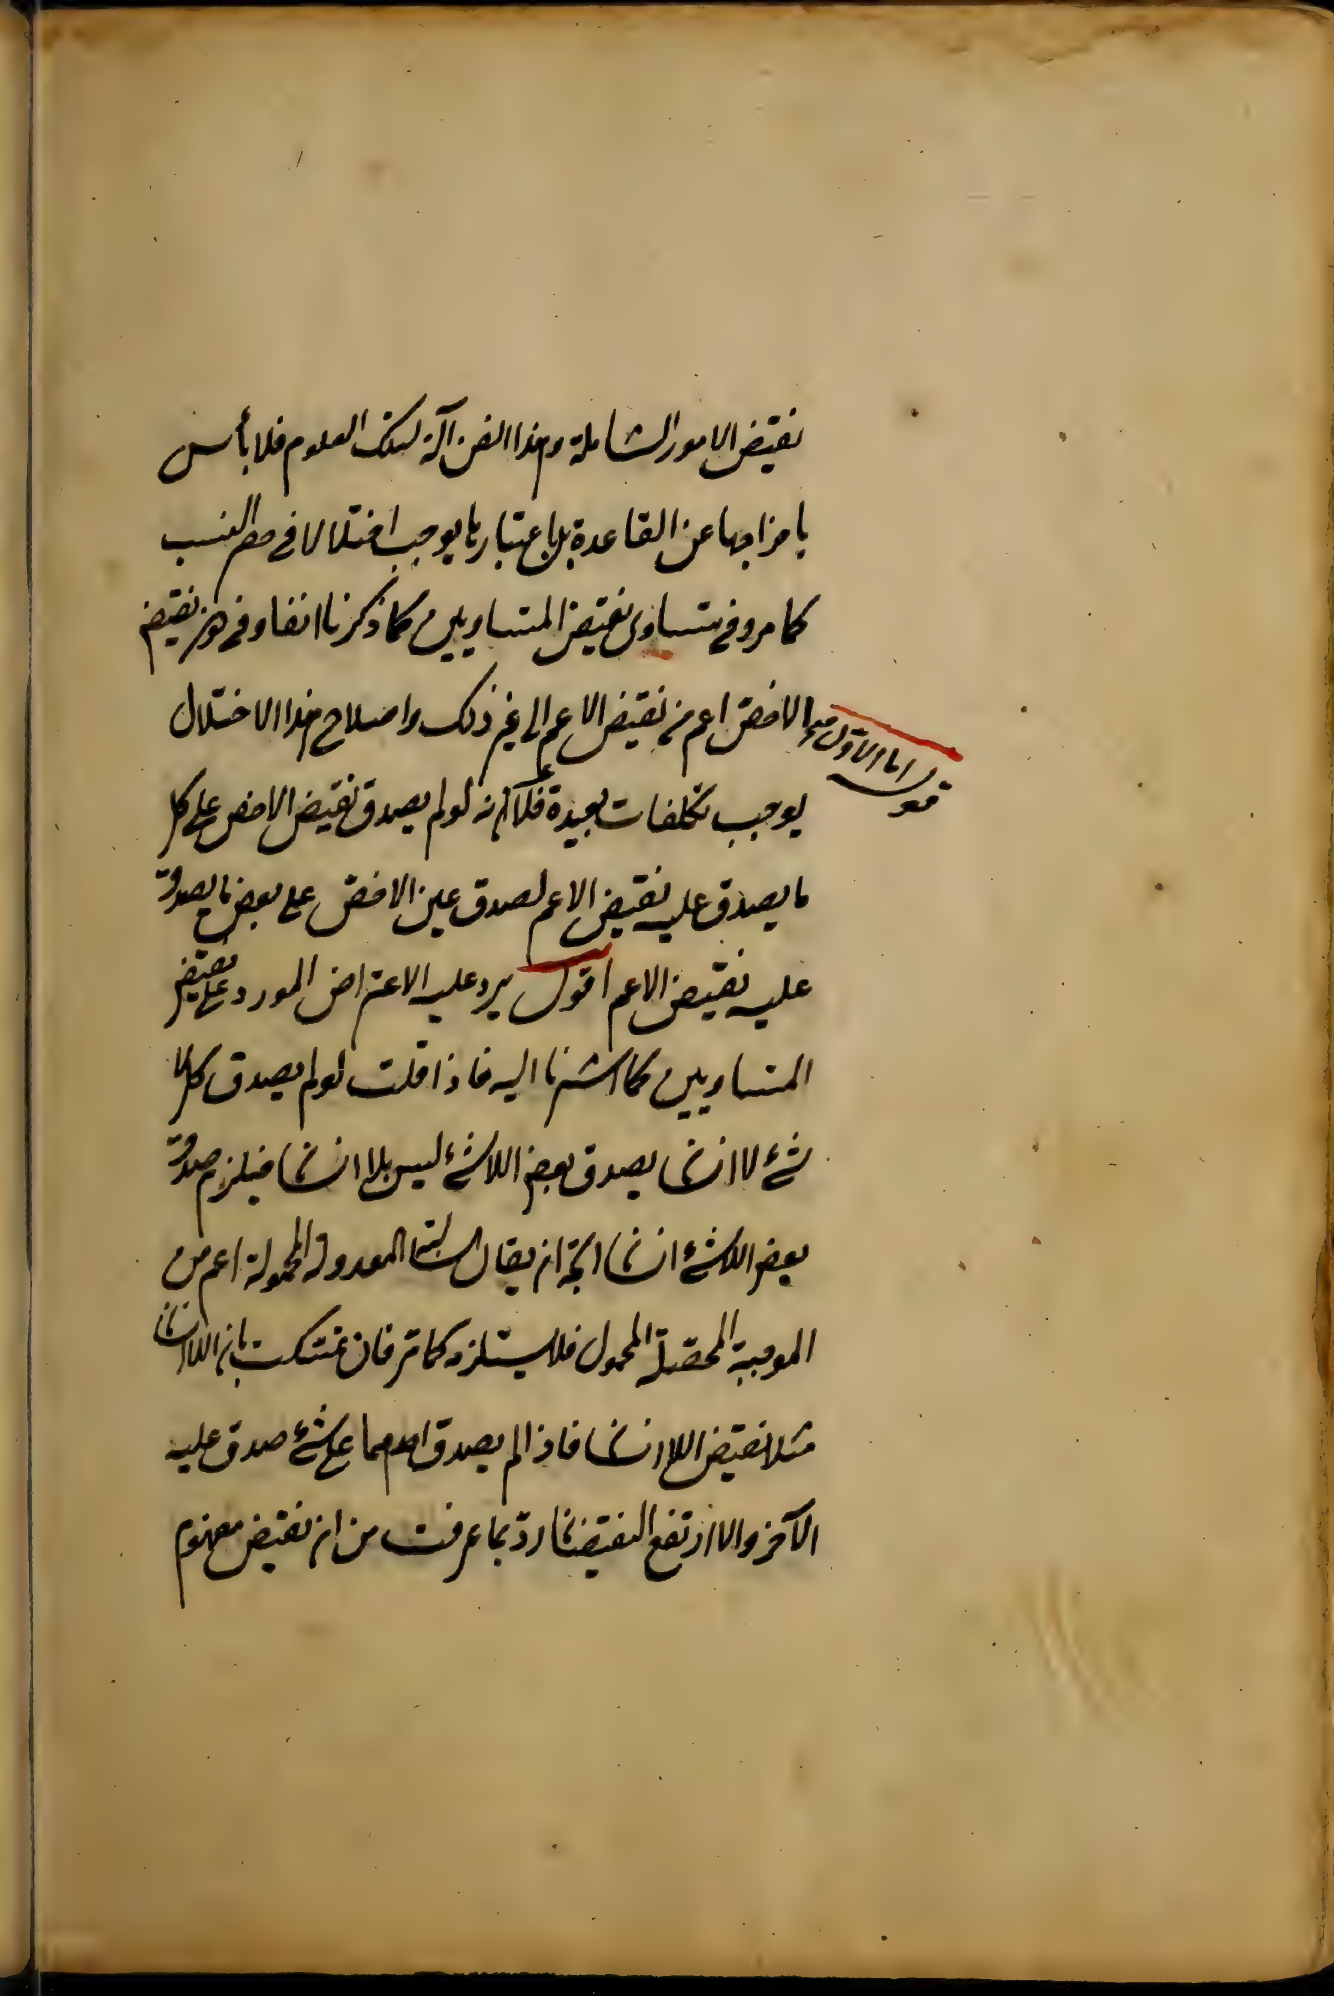 نقيض الامور الشاملة وهذا الفن آلة لتلك العلوم فلا بأس
باخراجها عن القاعدة بل باعتبارها يوجب اختلالا في حصر النسب
كما مر وفي تساوى نقيض المتساويين كما ذكرنا انفا وفي كون نقيض
الاخص اعم من نقيض الاعم الى غير ذلك واصلاح هذا الاختلال
قوله اما الاول
يوجب تكلفات بعيدة فلانه لو لم يصدق نقيض الاخص على كل
ما يصدق عليه نقيض الاعم لصدق عين الاخص على بعض ما يصدق
عليه نقيض الاعم اقول يرد عليه الاعتراض المورد على نقيض
المتساويين كما اشرنا اليه فاذا قلت لو لم يصدق كل لا
شئ لا انسان يصدق بعض اللاشئ ليس بلا انسان فيلزم صدق
بعض اللاشئ انسان اتجه ان يقال السالبة المعدولة المحمولة اعم من
الموجبة المحصلة المحمول فلا يستلزمه كما مر فان تمسكت بان اللاانسان
مثلا نقيض اللاانسان فاذا لم يصدق احدهما على شئ صدق عليه
الآخر والا ارتفع النقيضان ردّ بما عرفت من ان نقيض مفهوم